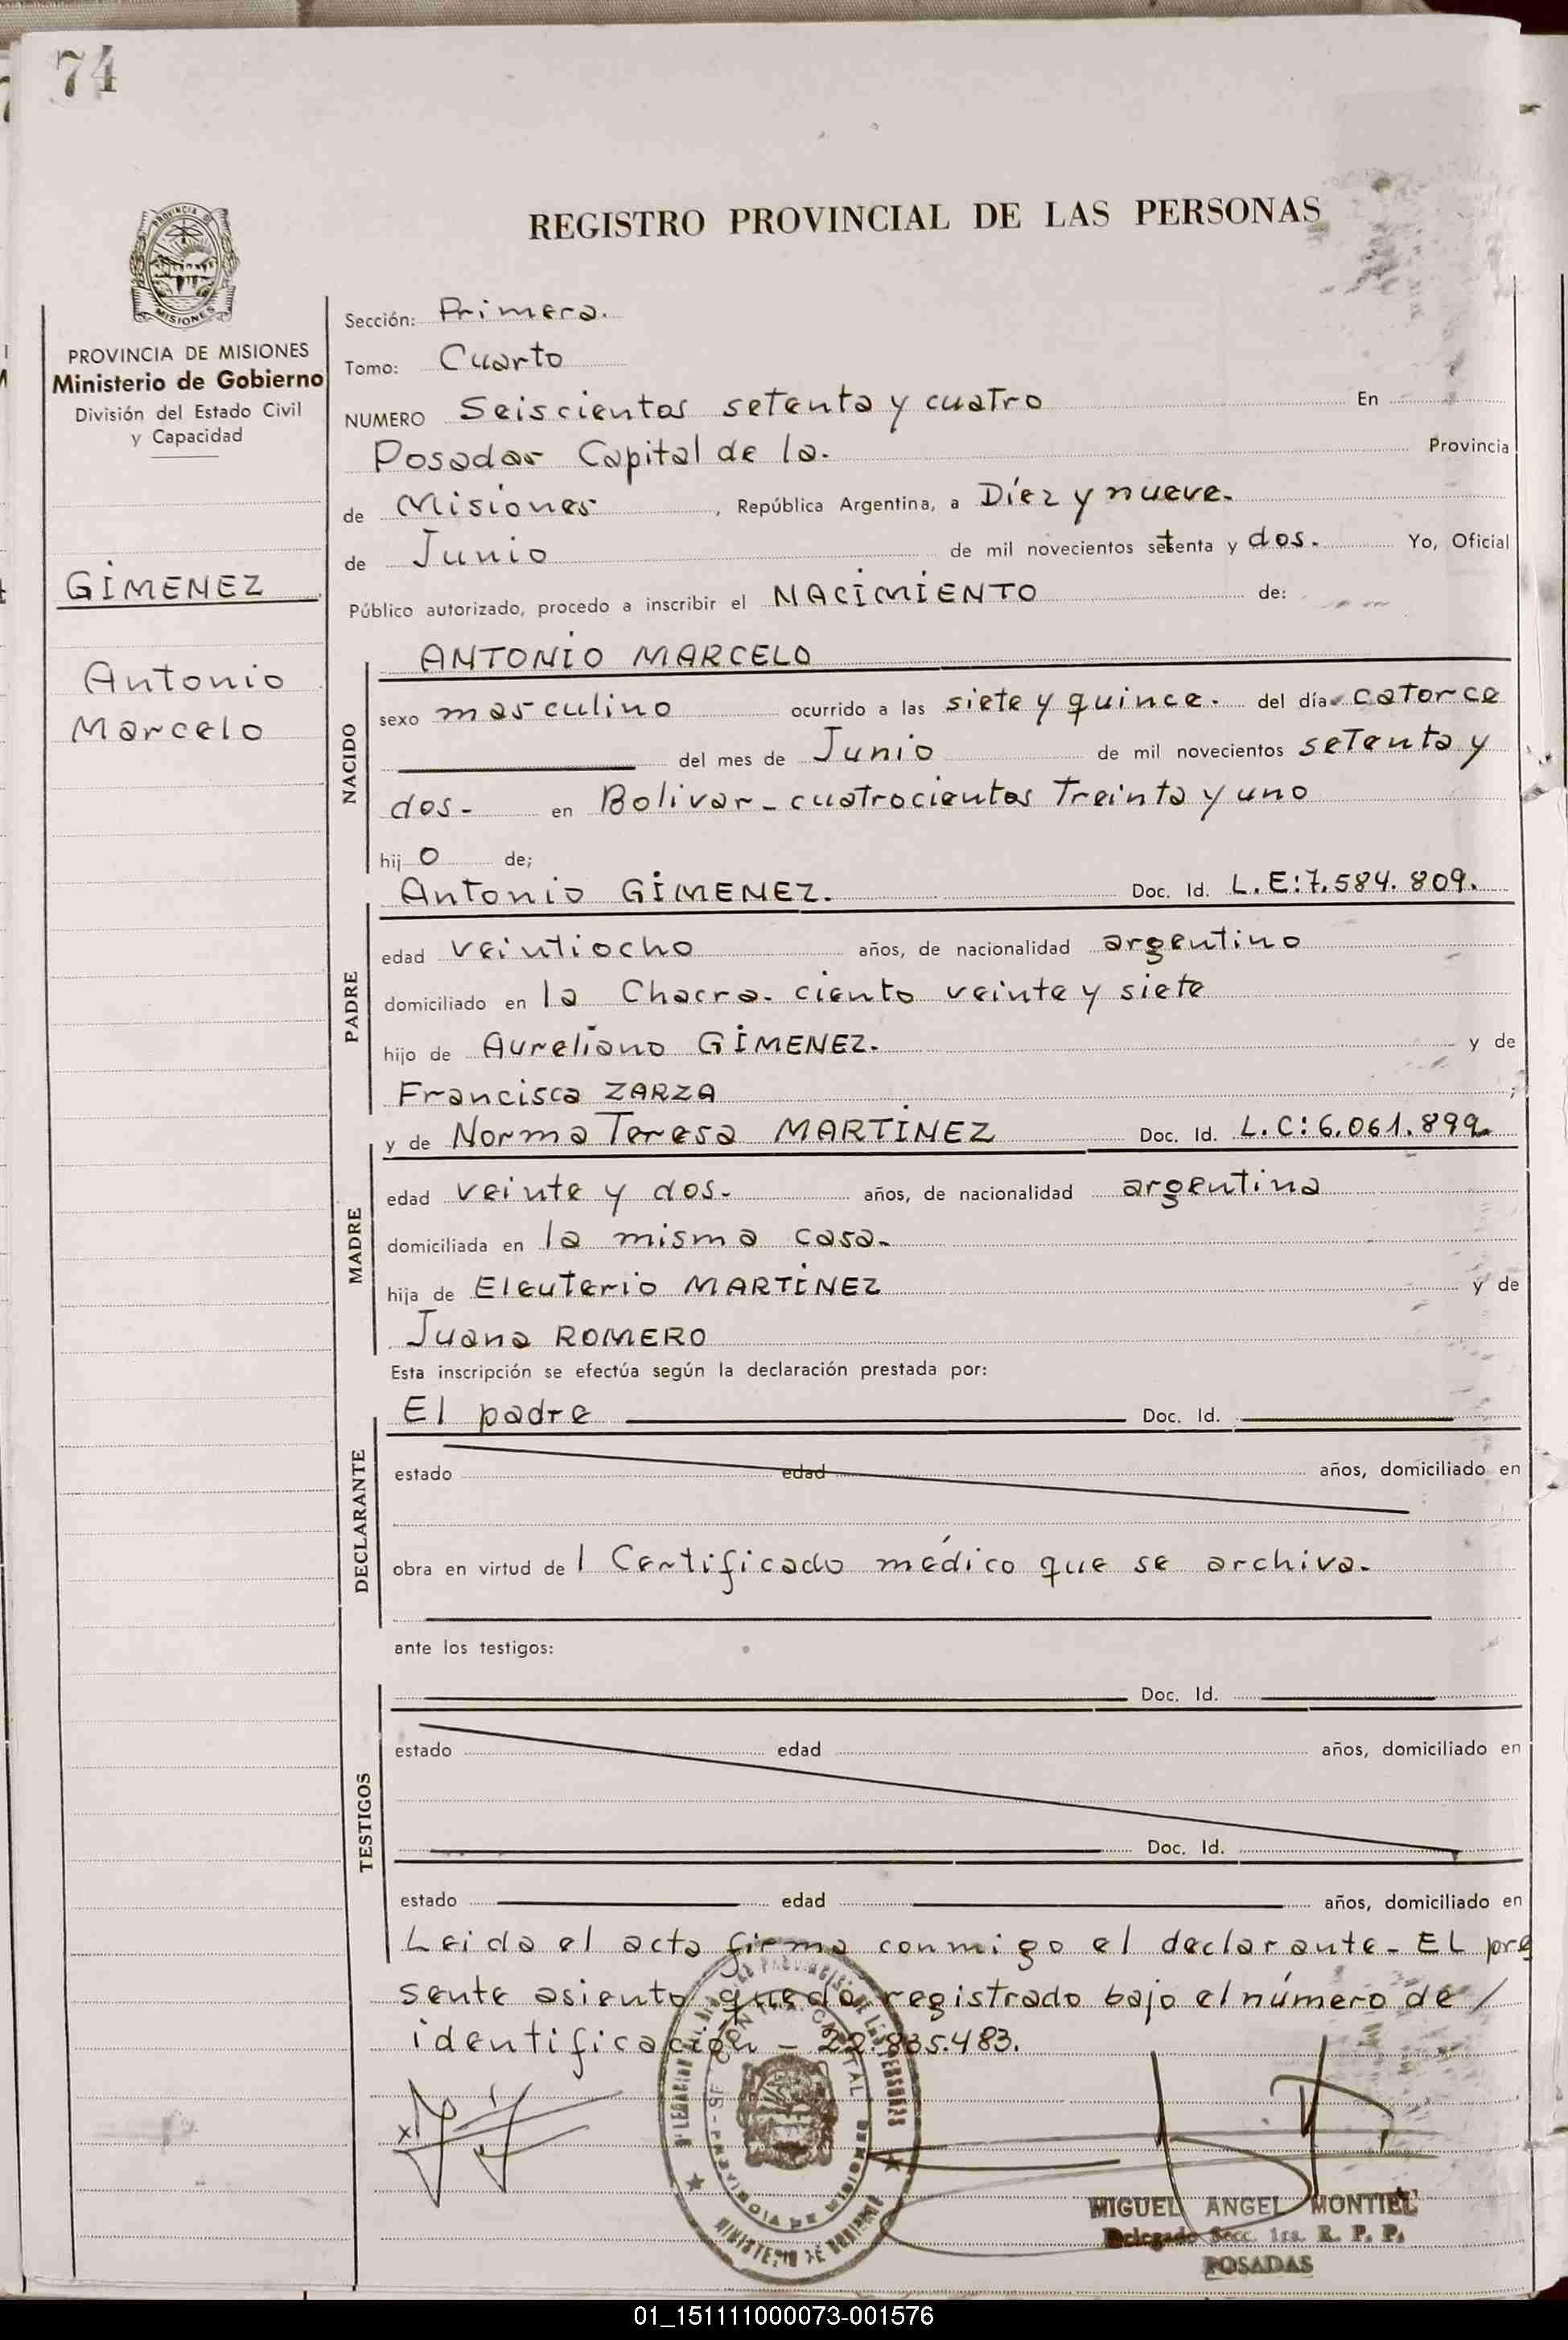 74
REGISTRO PROVINCIAL DE LAS PERSONAS
MISIONES
PROVINCIA DE MISIONES
Ministerio de Gobierno
División del Estado Civil
y Capacidad
GIMENEZ
Antonio
Marcelo
Sección: Primera.
Tomo: Cuarto
NUMERO Seiscientos setenta y cuatro En
Posadas Capital de la. Provincia
de Misiones, República Argentina, a Díez y nueve.
de Junio de mil novecientos setenta y dos. Yo, Oficial
Público autorizado, procedo a inscribir el NACIMIENTO de:
NACIDO
ANTONIO MARCELO
sexo masculino ocurrido a las siete y quince. del día catorce
del mes de Junio de mil novecientos setenta y
dos- en Bolivar- cuatrocientos Treinta y uno
hij o de;
PADRE
Antonio GIMENEZ. Doc. Id. L.E:7.584.809.
edad veintiocho años, de nacionalidad argentino
domiciliado en la Chacra- ciento veinte y siete
hijo de Aureliano GIMENEZ. y de
Francisca ZARZA;
MADRE
y de Norma Teresa MARTINEZ Doc. Id. L.C:6.061.899
edad veinte y dos- años, de nacionalidad argentina
domiciliada en la misma casa-
hija de Eleuterio MARTINEZ y de
Juana ROMERO
Esta inscripción se efectúa según la declaración prestada por:
DECLARANTE
El padre Doc. Id.
estado edad años, domiciliado en
obra en virtud de l Certificado médico que se archiva-
ante los testigos:
TESTIGOS
Doc. Id.
estado edad años, domiciliado en
Doc. Id.
estado edad años, domiciliado en
Leida el acta firma conmigo el declarante- EL pre
sente asiento queda registrado bajo el número de /
identificación - 22.835.483.
PROVINCIA DE MISIONES
MINISTERIO DE GOBIERNO
MIGUEL ANGEL MONTIEL
Delegado Secc. 1ra. R. P. P.
POSADAS
01_151111000073-001576